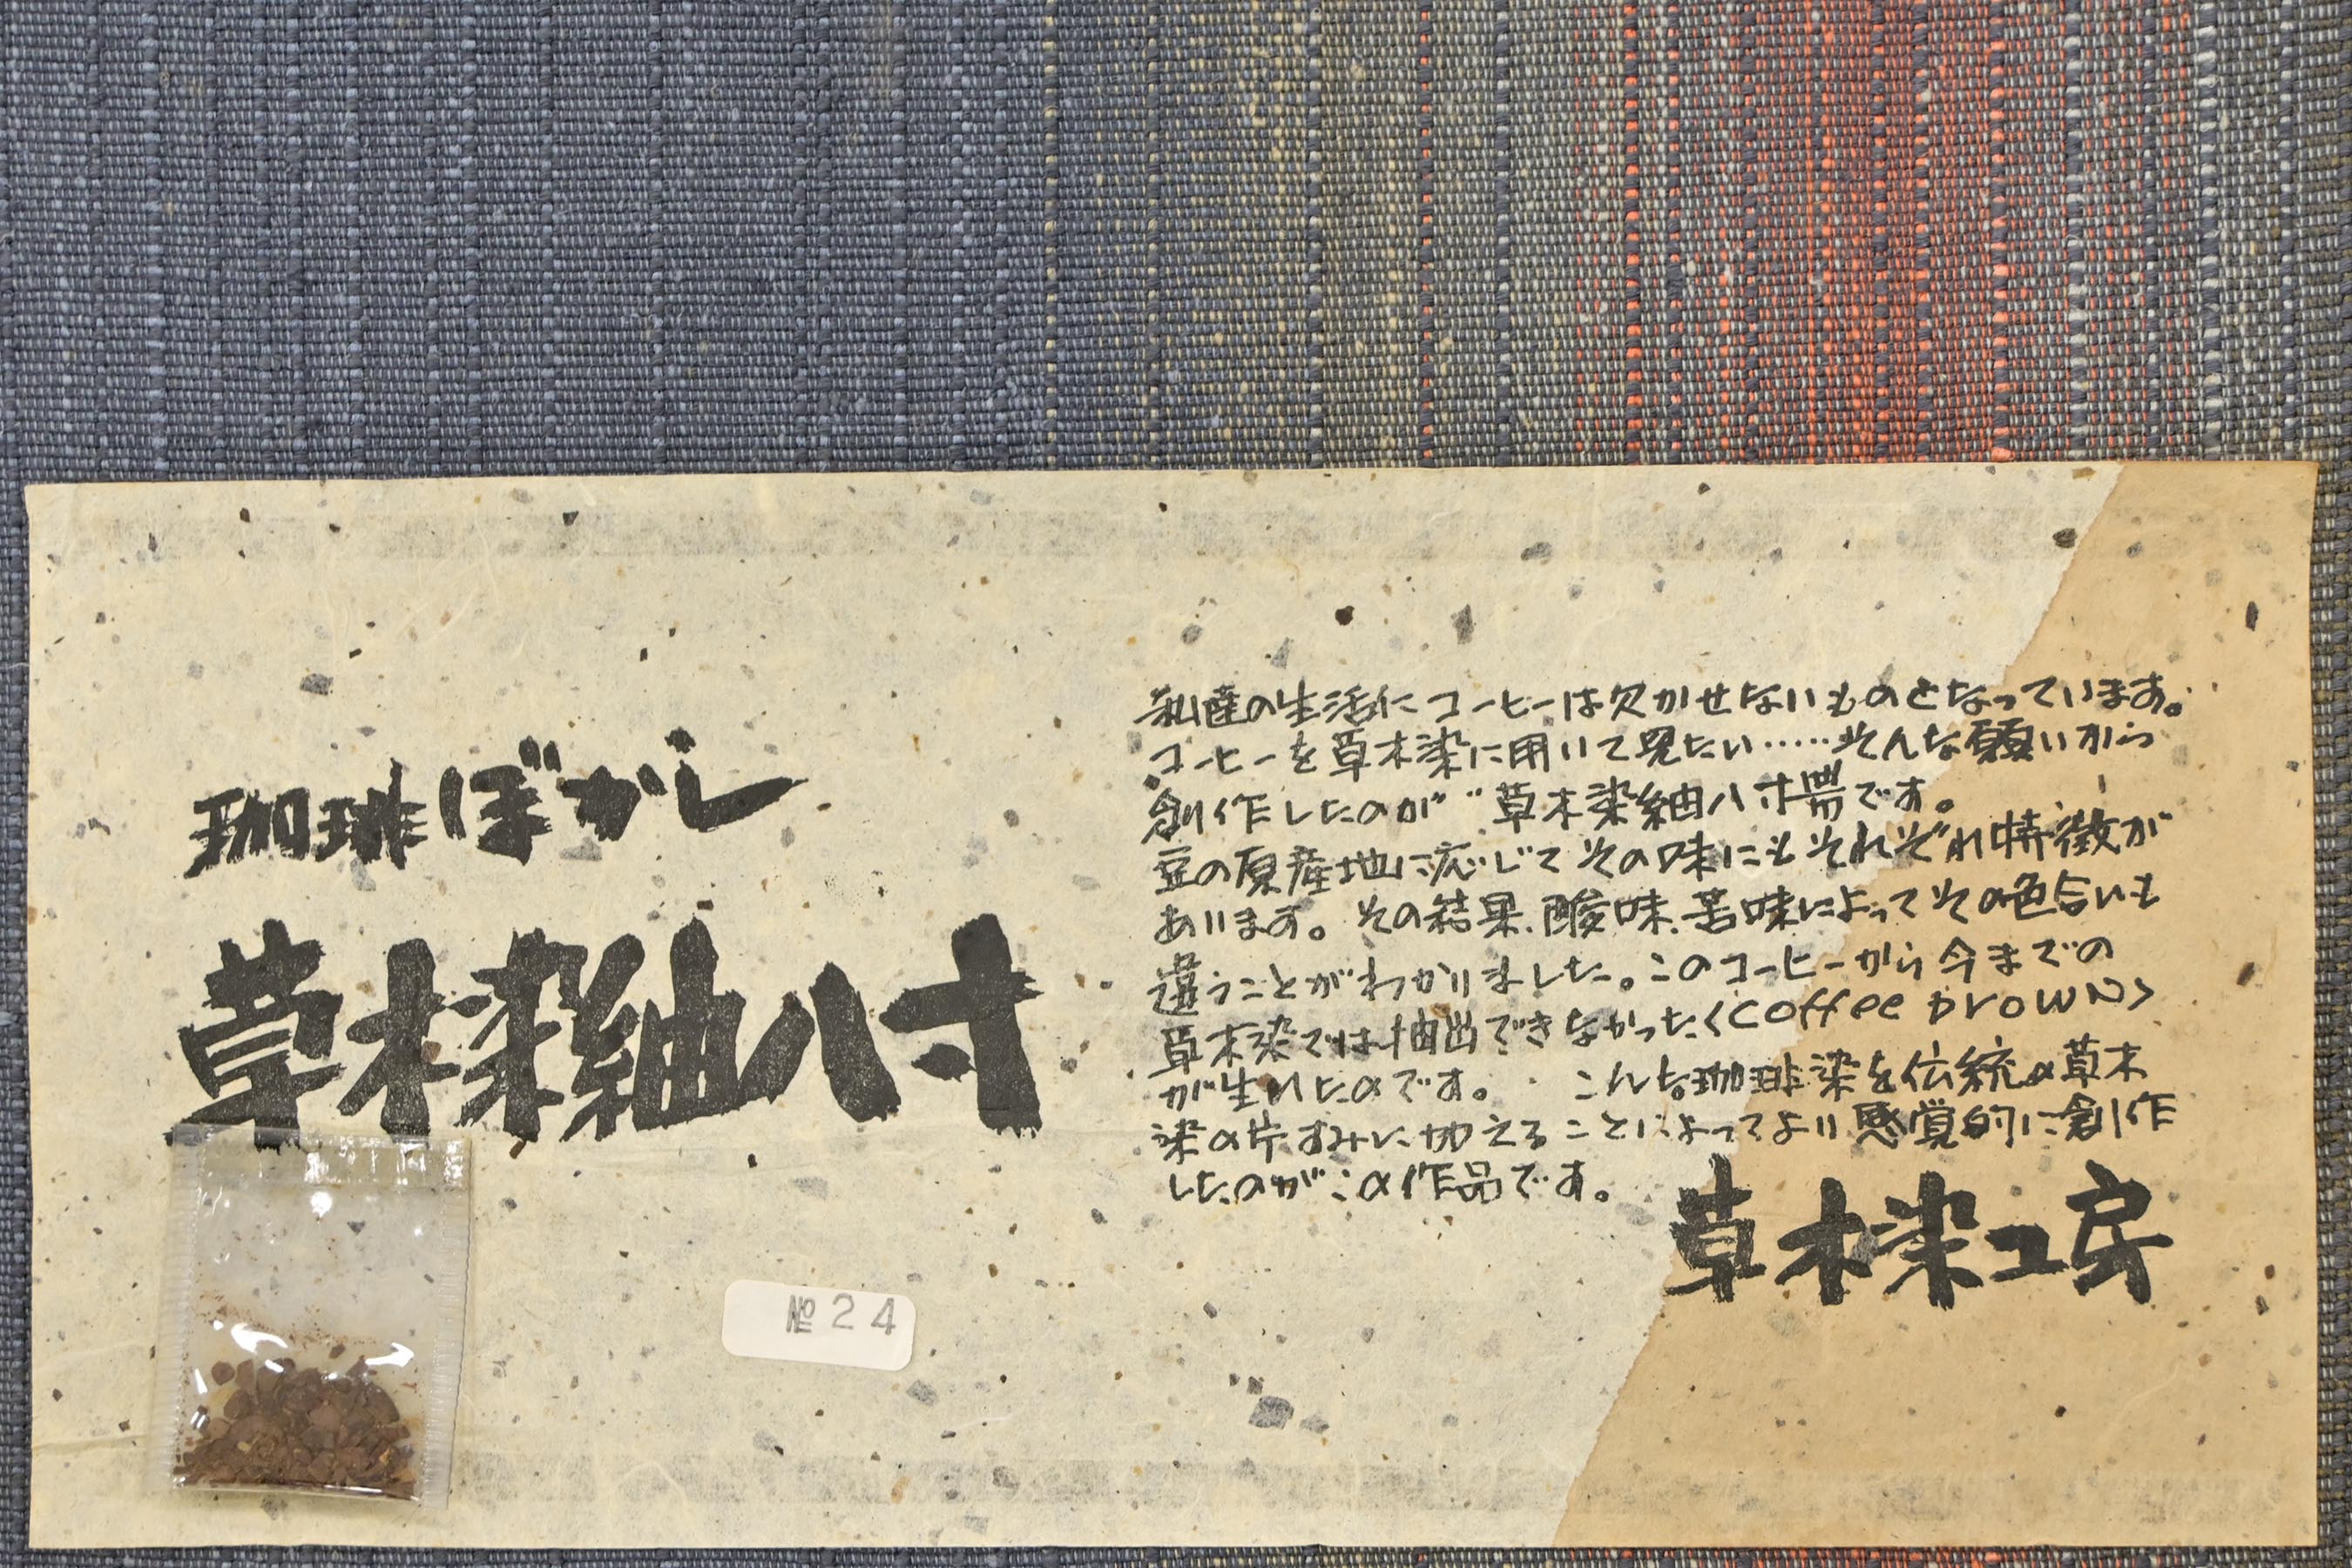 珈琲ぼかし
草木染紬八寸
№24
私達の生活にコーヒーは欠かせないものとなっています。
コーヒーを草木染に用いて見たい……そんな願いから
創作したのが〝草木染紬八寸帯です。
豆の原産地に応じてその味にもそれぞれ特徴が
あります。その結果、酸味、苦味によってその色合いも
違うことがわかりました。このコーヒーから今までの
草木染では抽出できなかった〈coffee brown〉
が生れたのです。 こんな珈琲染を伝統の草木
染の片すみに加えることによってより感覚的に創作
したのがこの作品です。
草木染工房